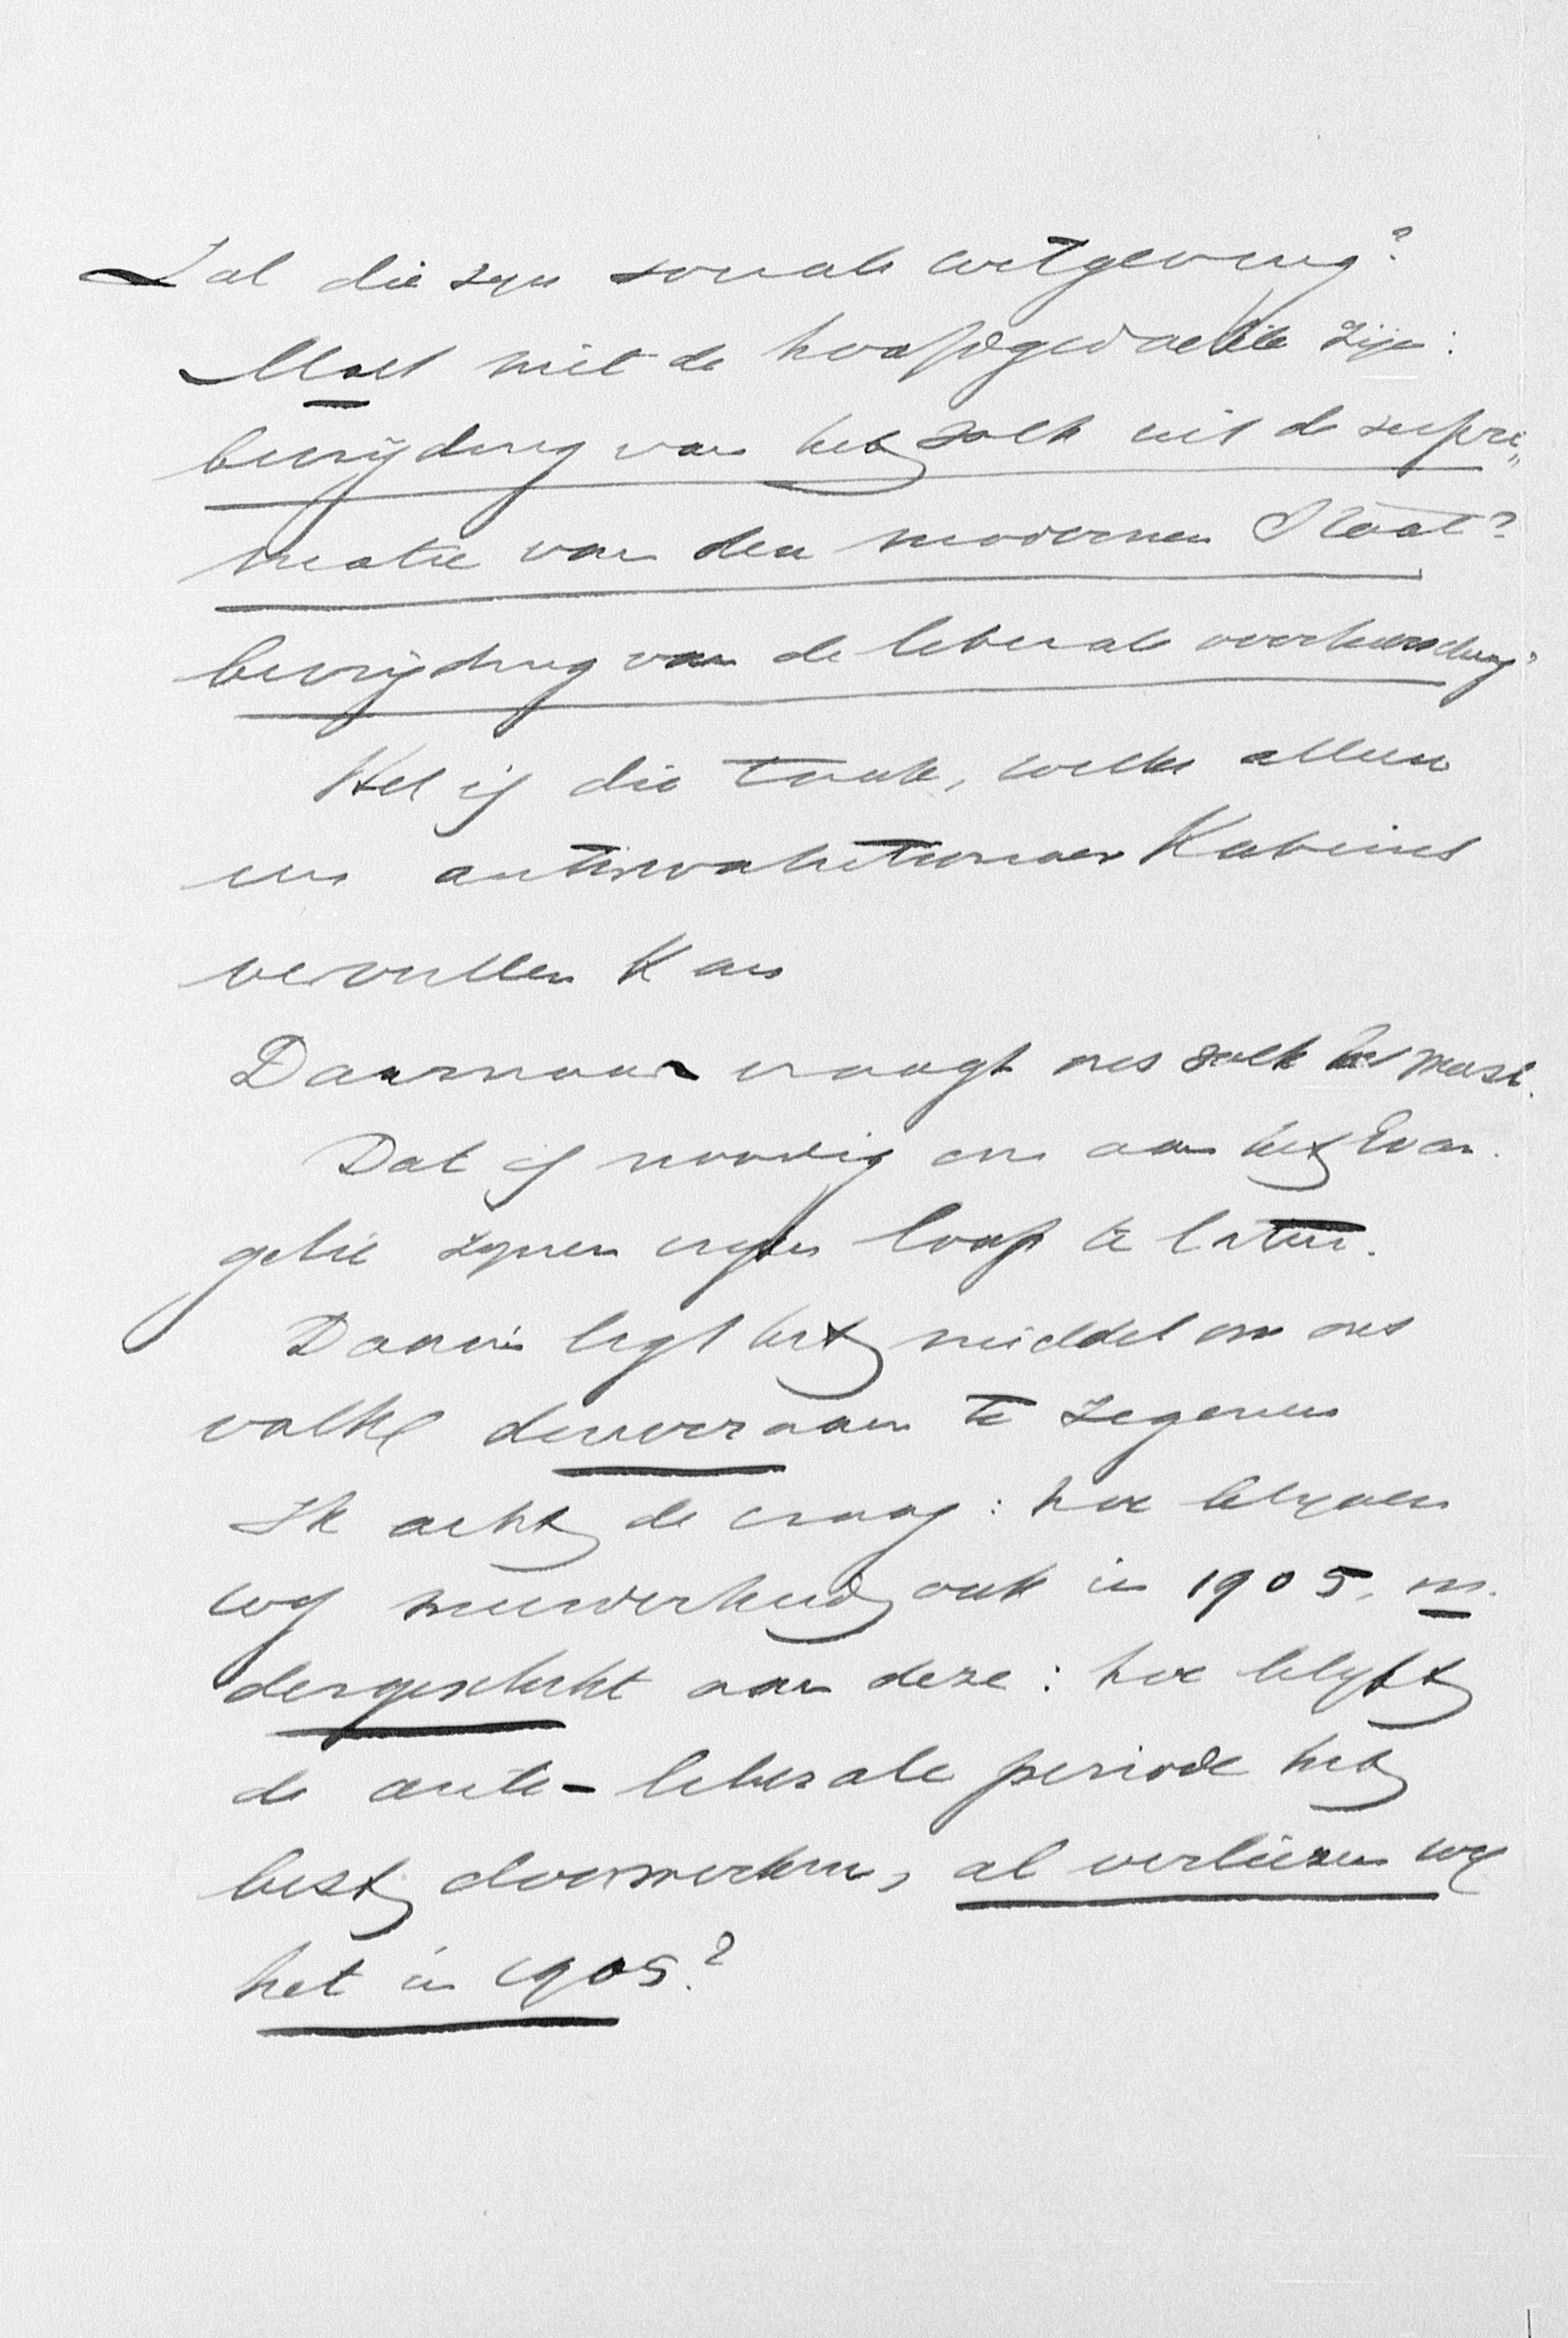 Zal die zijn sociale wetgeving?
Moet niet de hoofdgedachte zijn:
bevrijding van het volk uit de supre„
matie van den modernen Staat?
bevrijding van de liberale overheersching?
Het is die taak, welke alleen
een antirevolutionair Kabinet
vervullen kan
Daarnaar vraagt ons volk het meest.
Dat is noodig om aan het Evan.
gelie zijnen vrijen loop te laten.
Daarin ligt het middel om ons
volk duurzaam te zegenen
Ik acht de vraag: hoe blijven
wij meerderheid ook in 1905, on.
dergeschikt aan deze: hoe blijft
de anti-liberale periode het
best doorwerken, al verliezen wij
het in 1905?